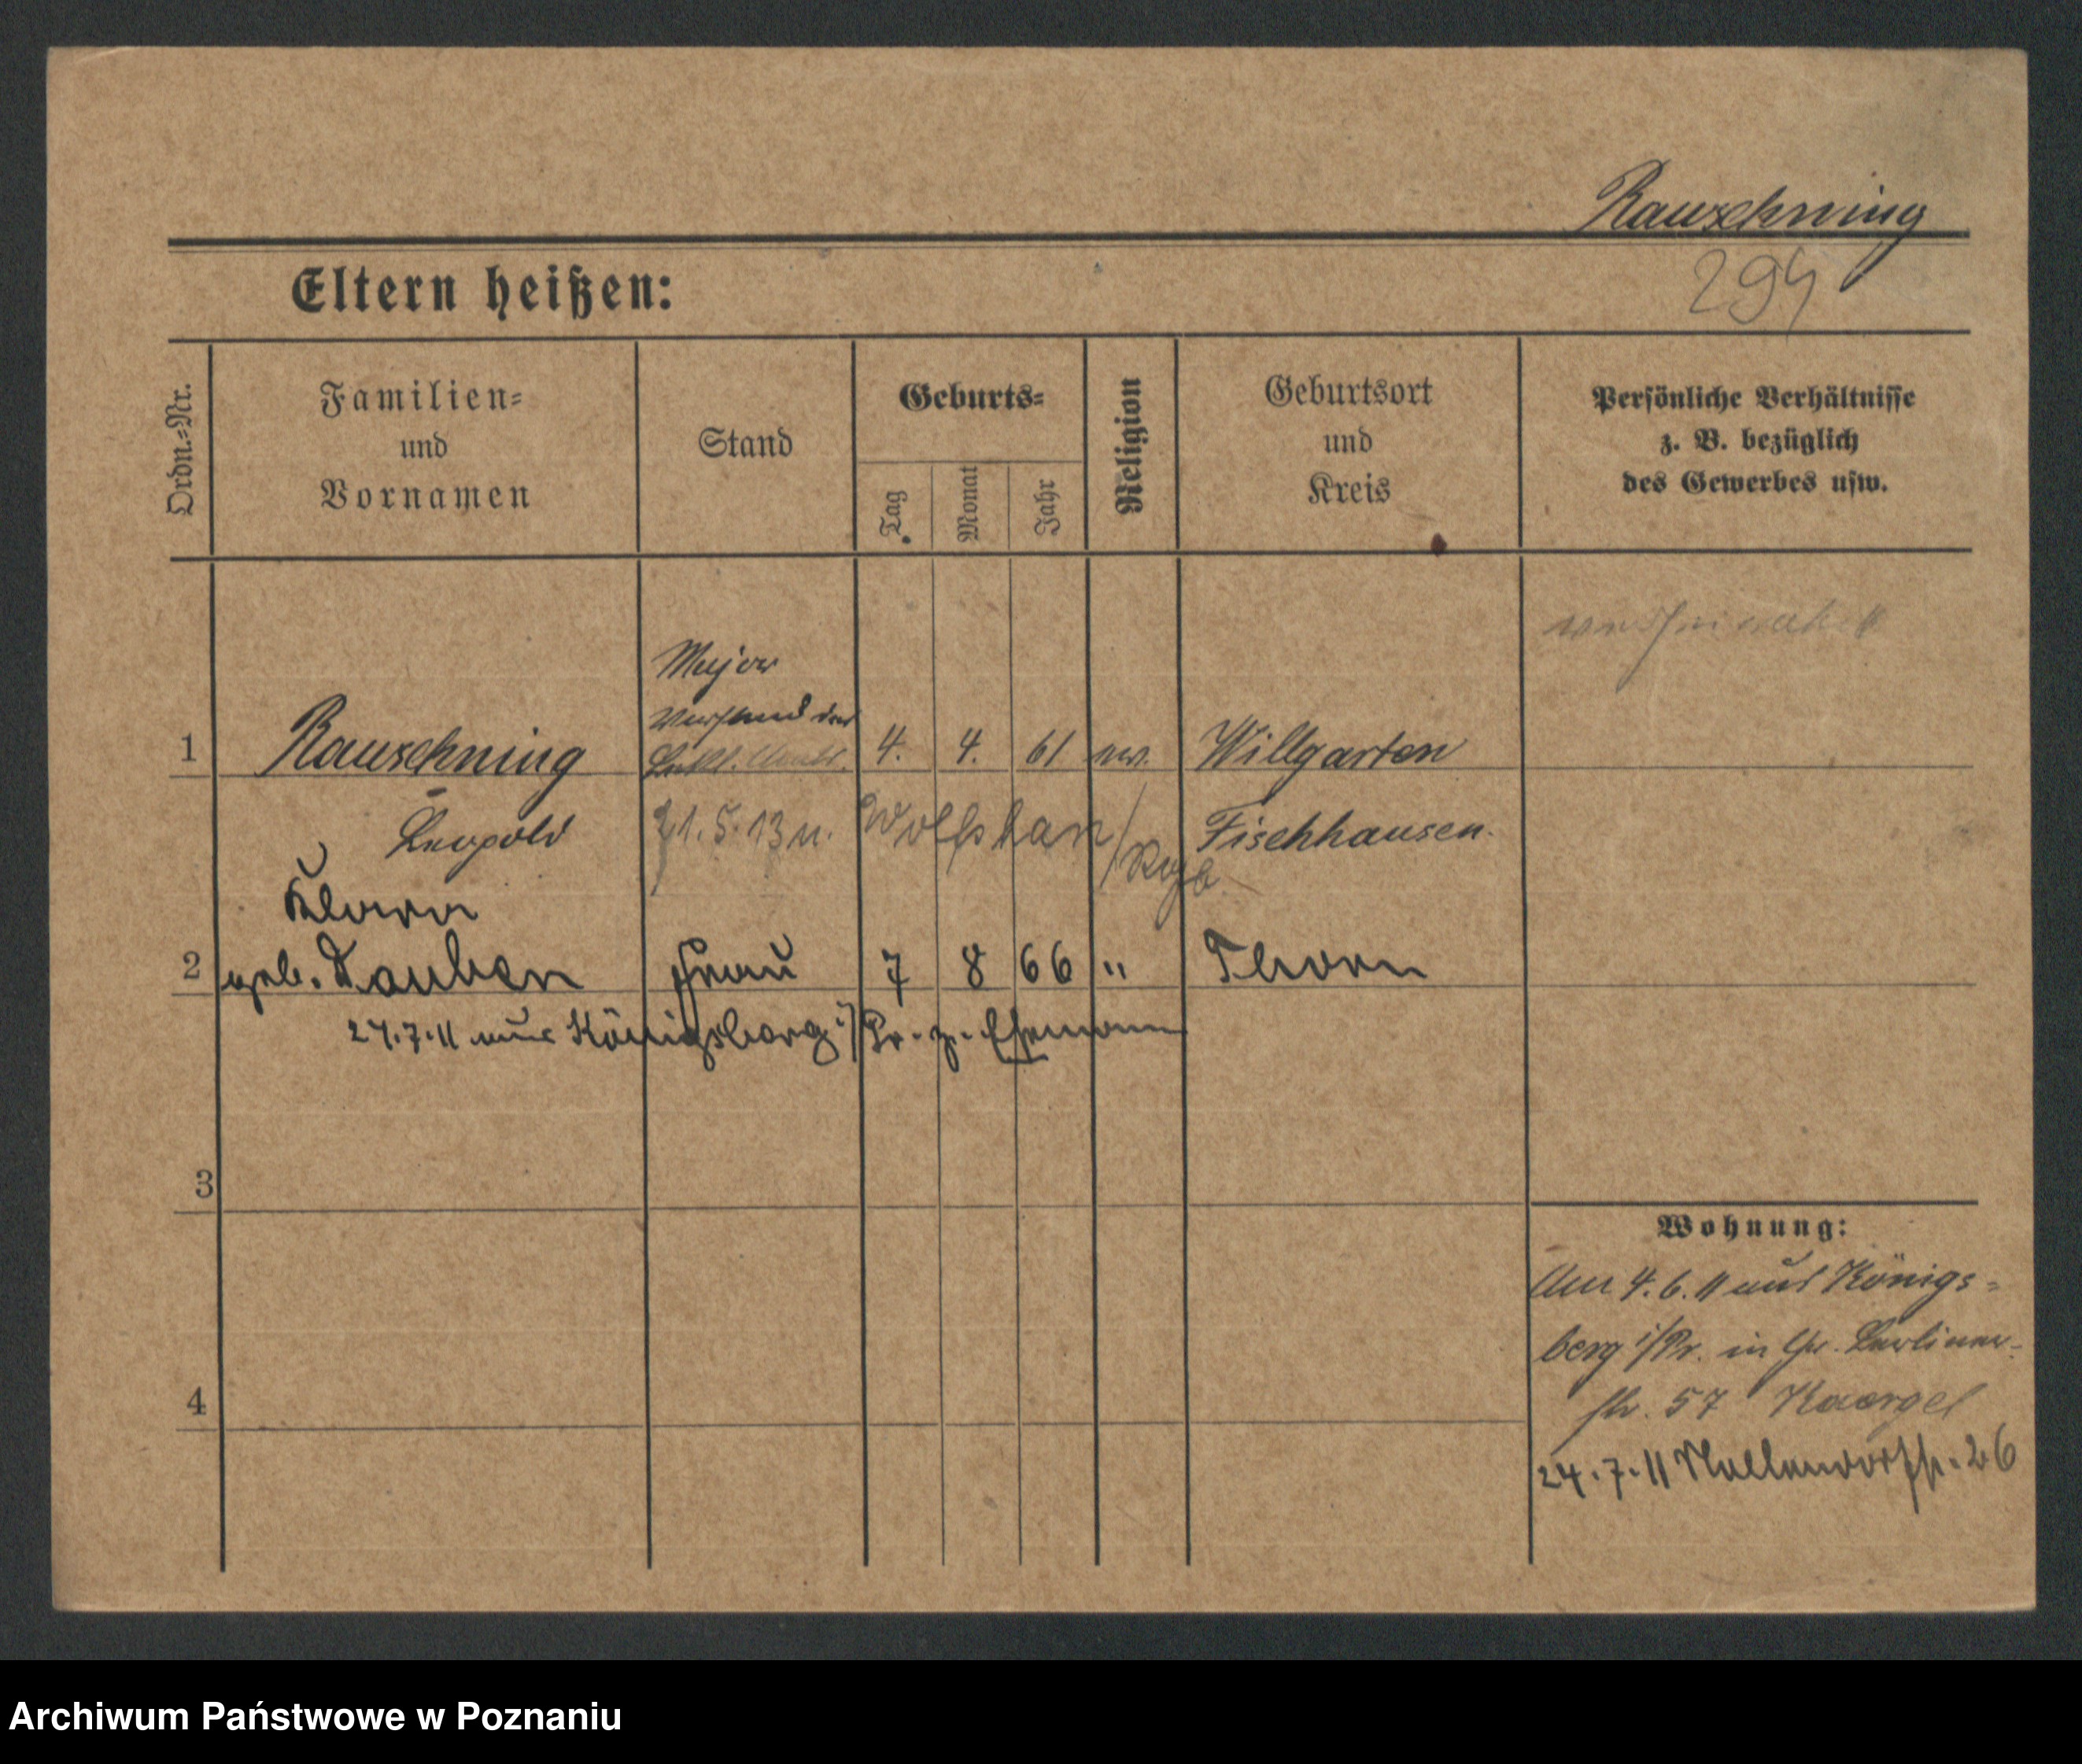 Rauschning
294
Eltern heißen:
Ordn.=Nr.
Familien=
und
Vornamen
Stand
Geburts=
Tag
Monat
Jahr
Religion
Geburtsort
und
Kreis
Persönliche Verhältnisse
z. B. bezüglich
des Gewerbes usw.
Major
Vorstand des
1 Rauschning 4. 4. 61 ev. Willgarten
Leopold 21.5.13 n. Fischhausen.
Klara
2 geb. Tauben Frau 7 8 66 " Thorn
24.7.11 aus Königsberg i/Pr. z. Ehemann
3
Wohnung:
Am 4.6.11 aus Königs=
berg i/Pr. in Gr. Berliner-
4
str. 57
24.7.11 Nollendorfstr. 26
Archiwum Państwowe w Poznaniu